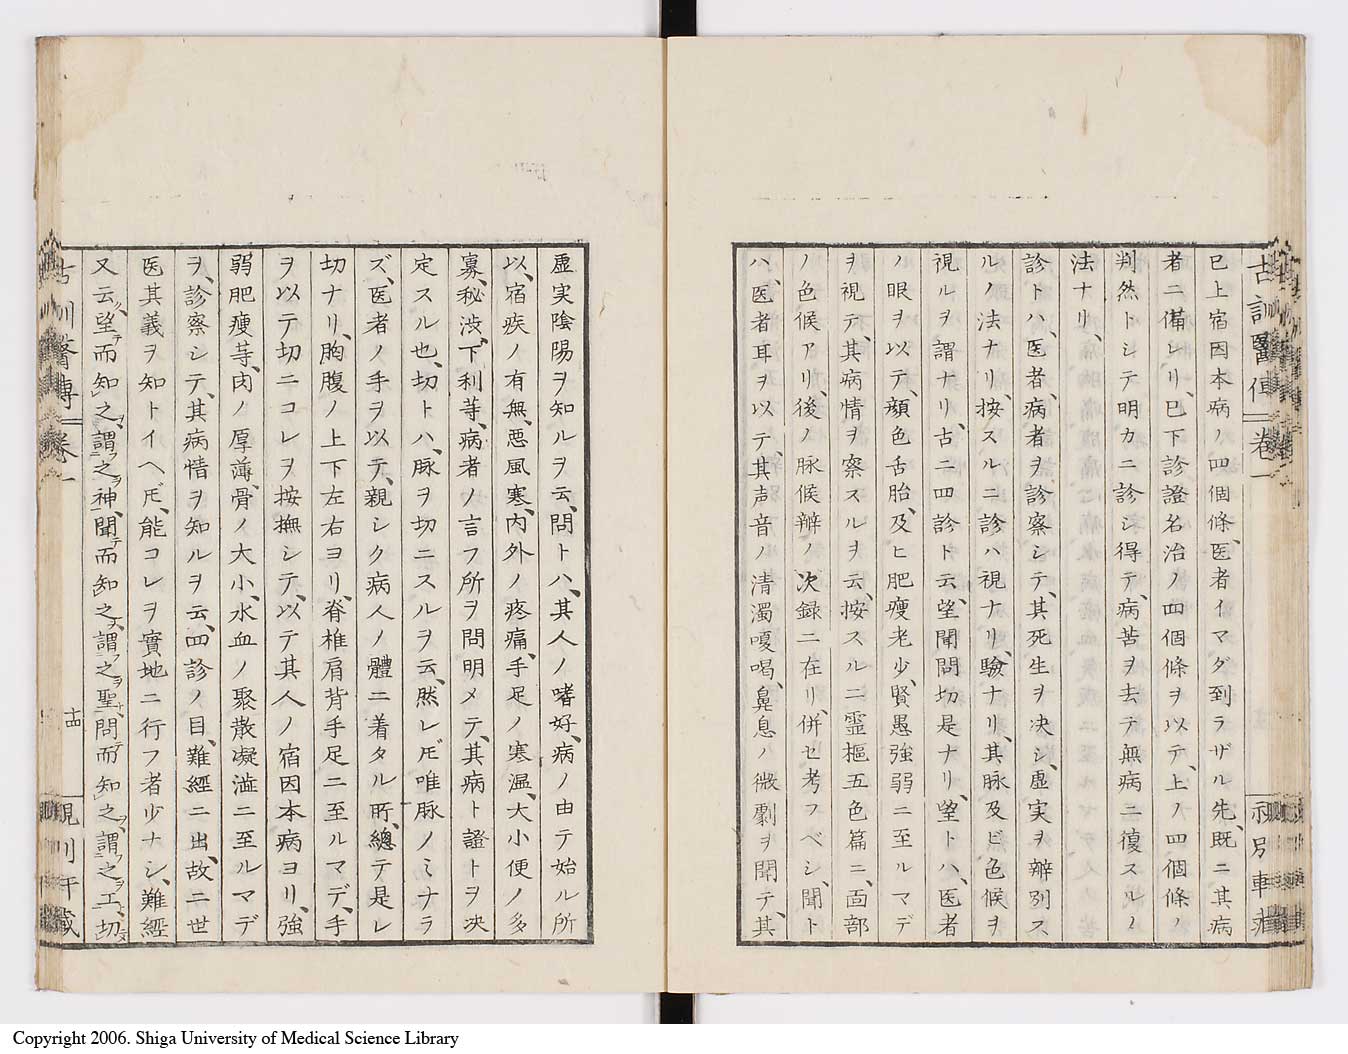 古訓醫傳 卷一
已上宿因本病ノ四個條、医者イマダ到ラザル先、既ニ其病
者ニ備レリ、已下診證名治ノ四個條ヲ以テ、上ノ四個條ノ
判然トシテ明カニ診シ得テ、病苦ヲ去テ無病ニ復スルノ
法ナリ、
診トハ、医者、病者ヲ診察シテ、其死生ヲ决シ、虚実ヲ辨別ス
ルノ法ナリ、按スルニ診ハ視ナリ、驗ナリ、其脉及ビ色候ヲ
視ルヲ謂ナリ、古ニ四診ト云、望聞問切是ナリ、望トハ、医者
ノ眼ヲ以テ、顔色舌胎、及ヒ肥瘦老少、賢愚強弱ニ至ルマデ
ヲ視テ、其病情ヲ察スルヲ云、按スルニ霊樞五色篇ニ、面部
ノ色候アリ、後ノ脉候辨ノ次録ニ在リ、併セ考フベシ、聞ト
ハ、医者耳ヲ以テ、其声音ノ清濁嗄喝、鼻息ノ微劇ヲ聞テ、其
虚実陰陽ヲ知ルヲ云、問トハ、其人ノ嗜好、病ノ由テ始ル所
以、宿疾ノ有無、惡風寒、内外ノ疼痛、手足ノ寒温、大小便ノ多
寡、秘渋、下利等、病者ノ言フ所ヲ問明メテ、其病ト證トヲ决
定スル也、切トハ、脉ヲ切ニスルヲ云、然レ𪜈唯脉ノミナラ
ズ、医者ノ手ヲ以テ、親シク病人ノ體ニ着タル所、總テ是レ
切ナリ、胸腹ノ上下左右ヨリ、脊椎肩背手足ニ至ルマデ、手
ヲ以テ切ニコレヲ按撫シテ、以テ其人ノ宿因本病ヨリ、強
弱肥瘦等、肉ノ厚薄、骨ノ大小、水血ノ聚散凝滋ニ至ルマデ
ヲ、診察シテ、其病情ヲ知ルヲ云、四診ノ目、難經ニ出、故ニ世
医其義ヲ知トイヘ𪜈、能コレヲ實地ニ行フ者少ナシ、難經
又云、望而知之、謂之神、聞而知之、謂之聖、問而知之、謂之工、切
古訓醫傳 卷一 十四